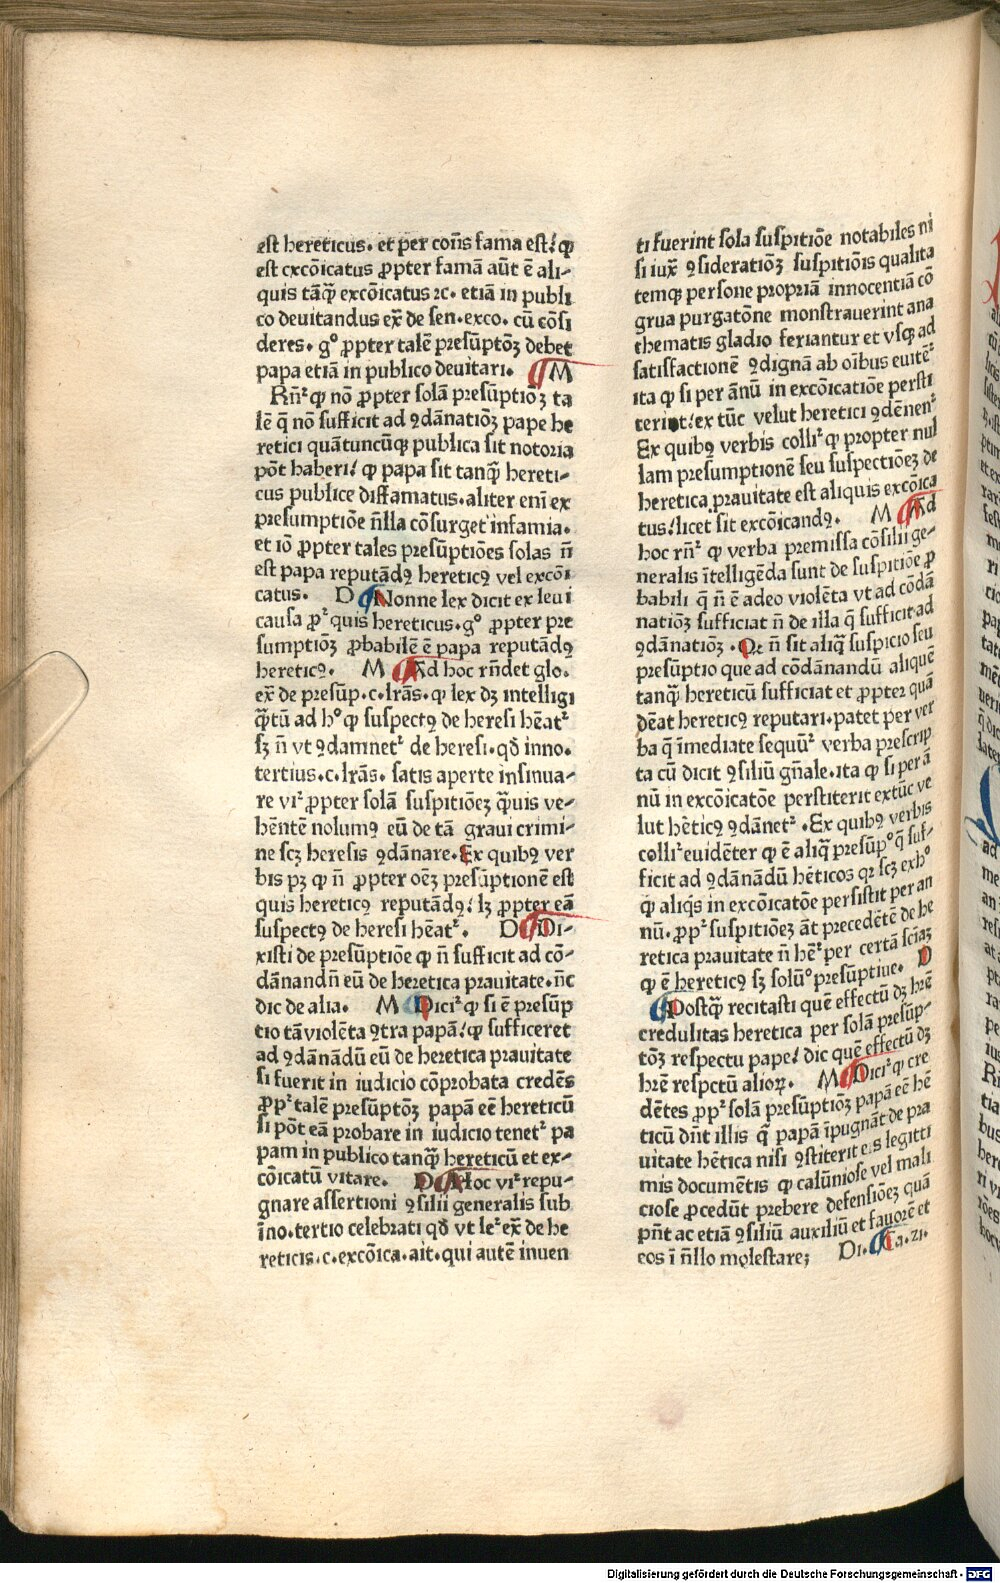 est hereticus. et per cōn̄s fama est! ꝙ
est excōicatus ꝓpter famā aūt ē ali-
quis tāꝙ̄ excōicatus ⁊c. etiā in publi
co deuitandus ex̄ de sen. exco. cū cōsi
deres. gº ꝓpter talē presūptōꝫ debet
papa etiā in publico deuitari. M
Rn̄ꝛ ꝙ nō ꝓpter solā presūptiōꝫ ta
lē q̄ nō sufficit ad ꝯdānatiōꝫ pape he
retici quātuncūqꝫ publica sit notoria
pōt haberi! ꝙ papa sit tanꝙ̄ hereti-
cus publice diffamatus. aliter eni͞ ex
presumptiōe n̄lla cōsurget infamia.
et iō ꝓpter tales presūptiōes solas n̄
est papa reputādꝯ hereticꝯ vel excōi
catus. D Nonne lex dicit ex leui
causa ꝓꝛ quis hereticus. gº ꝓpter pre
sumptiōꝫ ꝓbabilē ē papa reputādꝯ
hereticꝯ. M Ad hoc rn̄det glo.
ex̄ de presūp. c. lrās. ꝙ lex dꝫ intelligi
ꝙ̄tū ad hº ꝙ suspectꝯ de heresi hēatꝛ
sꝫ n̄ vt ꝯdamnetꝛ de heresi. qđ inno.
tertius. c. lrās. satis aperte insinua-
re viꝛ ꝓpter solā suspitiōeꝫ ꝙ̄uis ve-
hēntē nolumꝯ eū de tā graui crimi-
ne scꝫ heresis ꝯdānare. Ex quibꝯ ver
bis pꝫ ꝙ n̄ ꝓpter oēꝫ presūptionē est
quis hereticꝯ reputādꝯ! lꝫ ꝓpter eā
suspectꝯ de heresi hēatꝛ. D Di-
xisti de presūptiōe ꝙ n̄ sufficit ad cō-
dānandn̄ eū de heretica prauitate. n̄c
dic de alia. M Diciꝛ ꝙ si ē presūp
tio tā violēta ꝯtra papā! ꝙ sufficeret
ad ꝯdānādū eū de heretica prauitate
si fuerit in iudicio cōprobata credēs
ꝓpꝛ talē presūptōꝫ papā eē hereticū
si pōt eā probare in iudicio tenetꝛ pa
pam in publico tanꝙ̄ hereticū et ex-
cōicatū vitare. D Hoc viꝛ repu-
gnare assertioni ꝯsilii generalis sub
īno. tertio celebrati qđ vt leꝛ ex̄ de he
reticis. c. excōica. ait. qui autē inuen
ti fuerint sola suspitiōe notabiles ni
si iux̄ ꝯsideratiōꝫ suspitiōis qualita
temqꝫ persone propriā innocentiā cō
grua purgatōne monstrauerint ana
thematis gladio feriantur et vsqꝫ ad
satisfactionē ꝯdignā ab oībus euitēꝛ
ita ꝙ si per ānū in excōicatiōe persti
terint! ex tūc velut heretici ꝯdēnenꝛ
Ex quibꝯ verbis colliꝛ ꝙ propter nul
lam presumptionē seu suspectiōeꝫ de
heretica prauitate est aliquis excōica
tus! licet sit excōicandꝯ. M Ad
hoc rn̄ꝛ ꝙ verba premissa cōsilii ge-
neralis ītelligēda sunt de suspitiōe ꝓ
babili q̄ n̄ ē adeo violēta vt ad cōdā
natiōꝫ sufficiat n̄ de illa q̄ sufficit ad
ꝯdānatiōꝫ. Qꝛ n̄ sit aliq̄ suspicio seu
presūptio que ad cōdānandū aliquē
tanꝙ̄ hereticū sufficiat et ꝓpter quā
dēat hereticꝯ reputari. patet per ver
ba q̄ īmediate sequūꝛ verba prescrip
ta cū dicit ꝯsiliū gn̄ale. ita ꝙ si per ā
nū in excōicatōe perstiterit extūc ve
lut hēticꝯ ꝯdānetꝛ. Ex quibꝯ verbis
colliꝛ euidēter ꝙ ē aliq̄ presūpº q̄ suf-
ficit ad ꝯdānādū hēticos qꝛ scꝫ exhº
ꝙ aliqs in excōicatōe persistit per an
nū. ꝓpꝛ suspitiōeꝫ āt precedētē de he
retica prauitate n̄ hēꝛ per certā sciāꝫ
ꝙ ē hereticꝯ sꝫ solūº presūptiue. D
Postꝙ̄ recitasti quē effectū dꝫ hrē
credulitas heretica per solā presūp-
tōꝫ respectu pape! dic quē effectū dꝫ
hrē respctū alioꝝ. M Diciꝛ ꝙ cre
dētes ꝓpꝛ solā presūptiōꝫ papā eē hē
ticū dn̄t illis q̄ papā īpugnāt de pra
uitate hētica nisi ꝯstiterit eis legitti
mis documētis ꝙ calūniose vel mali
ciose ꝓcedūt prebere defensiōeꝫ quā
pn̄t ac etiā ꝯsiliū auxiliū et fauorē et
eos ī n̄llo molestare; Di. Ca. xi.
Digitalisierung gefördert durch die Deutsche Forschungsgemeinschaft - DFG